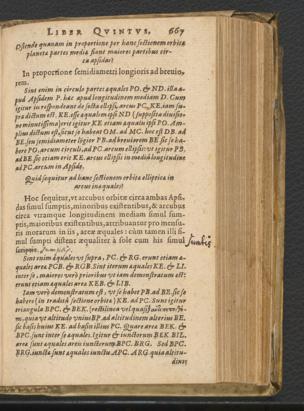 LIBER QVINTVS. 667
Ostende quanam in proportione per hanc sectionem orbitæ
planetæ partes mediæ fiant maiores partibus cir-
ca apsidas?
In proportione semidiametri longioris ad breuio,
rem.
Sint enim in circulo partes æquales PO. & ND. ista a-
pud Apsidem P. hæc apud longitudinem mediam D. Cum
igitur ijs respondeant de secta ellipsi, arcus PC. KE. iam su-
pra dictum est. KE. esse æqualem ipsi ND (suppositâ diuisio-
ne minutissimâ) erit igitur KE. etiam æqualis ipsi PO. Am-
plius dictum est, sicut se habent OM. ad MC. hoc est DB. ad
BE. siue semidiameter longior PB. ad breuiorem BE. sic se ha-
bere PO. arcum circuli, ad PC. arcum ellipseos: vt igitur PB.
ad BE. sic etiam erit KE. arcus ellipsis in mediâ longitudine
ad PC. arcum in Apside.
Quid sequitur ad hanc sectionem orbitæ elliptica in
arcus inæquales?
Hoc sequitur, vt arcubus orbitæ circa ambas Apsi,
das simul sumptis, minoribus existentibus, & arcubus
circa vtramque longitudinem mediam simul sum-
ptis, maioribus existentibus, attribuantur pro mensu-
ris morarum in iis, areæ æquales: cùm tamen illi si-
mul sumpti distent æqualiter à sole cum his simul
sumptis.
Sint enim æquales vt supra, PC. & RG. erunt etiam æ-
quales areæ PCB. & RGB. Sint iterum æquales KE. & LI.
inter se, maiores verò prioribus vt iam demonstratum est:
erunt etiam æquales areæ KEB. & LIB.
Iam verò demonstratum est, vt se habet PB. ad BE. sic se
habere (in traductâ sectione orbitæ) KE. ad PC. Sunt igitur
triangula BPC. & BEK.
m, quia vt altitudo vnius BP. ad altitudinem alterius BE.
sic basis huius KE. ad basin illius PC. Quare area BEK. &
BPC. sunt inter se æquales. Igitur & iunctorum BEK. BIL.
areæ sunt æquales areis iunctorum BPC. BRG. Sed BPC.
BRG. iuncta sunt æquales iunctis APC. ARG. quia altitu-
dines